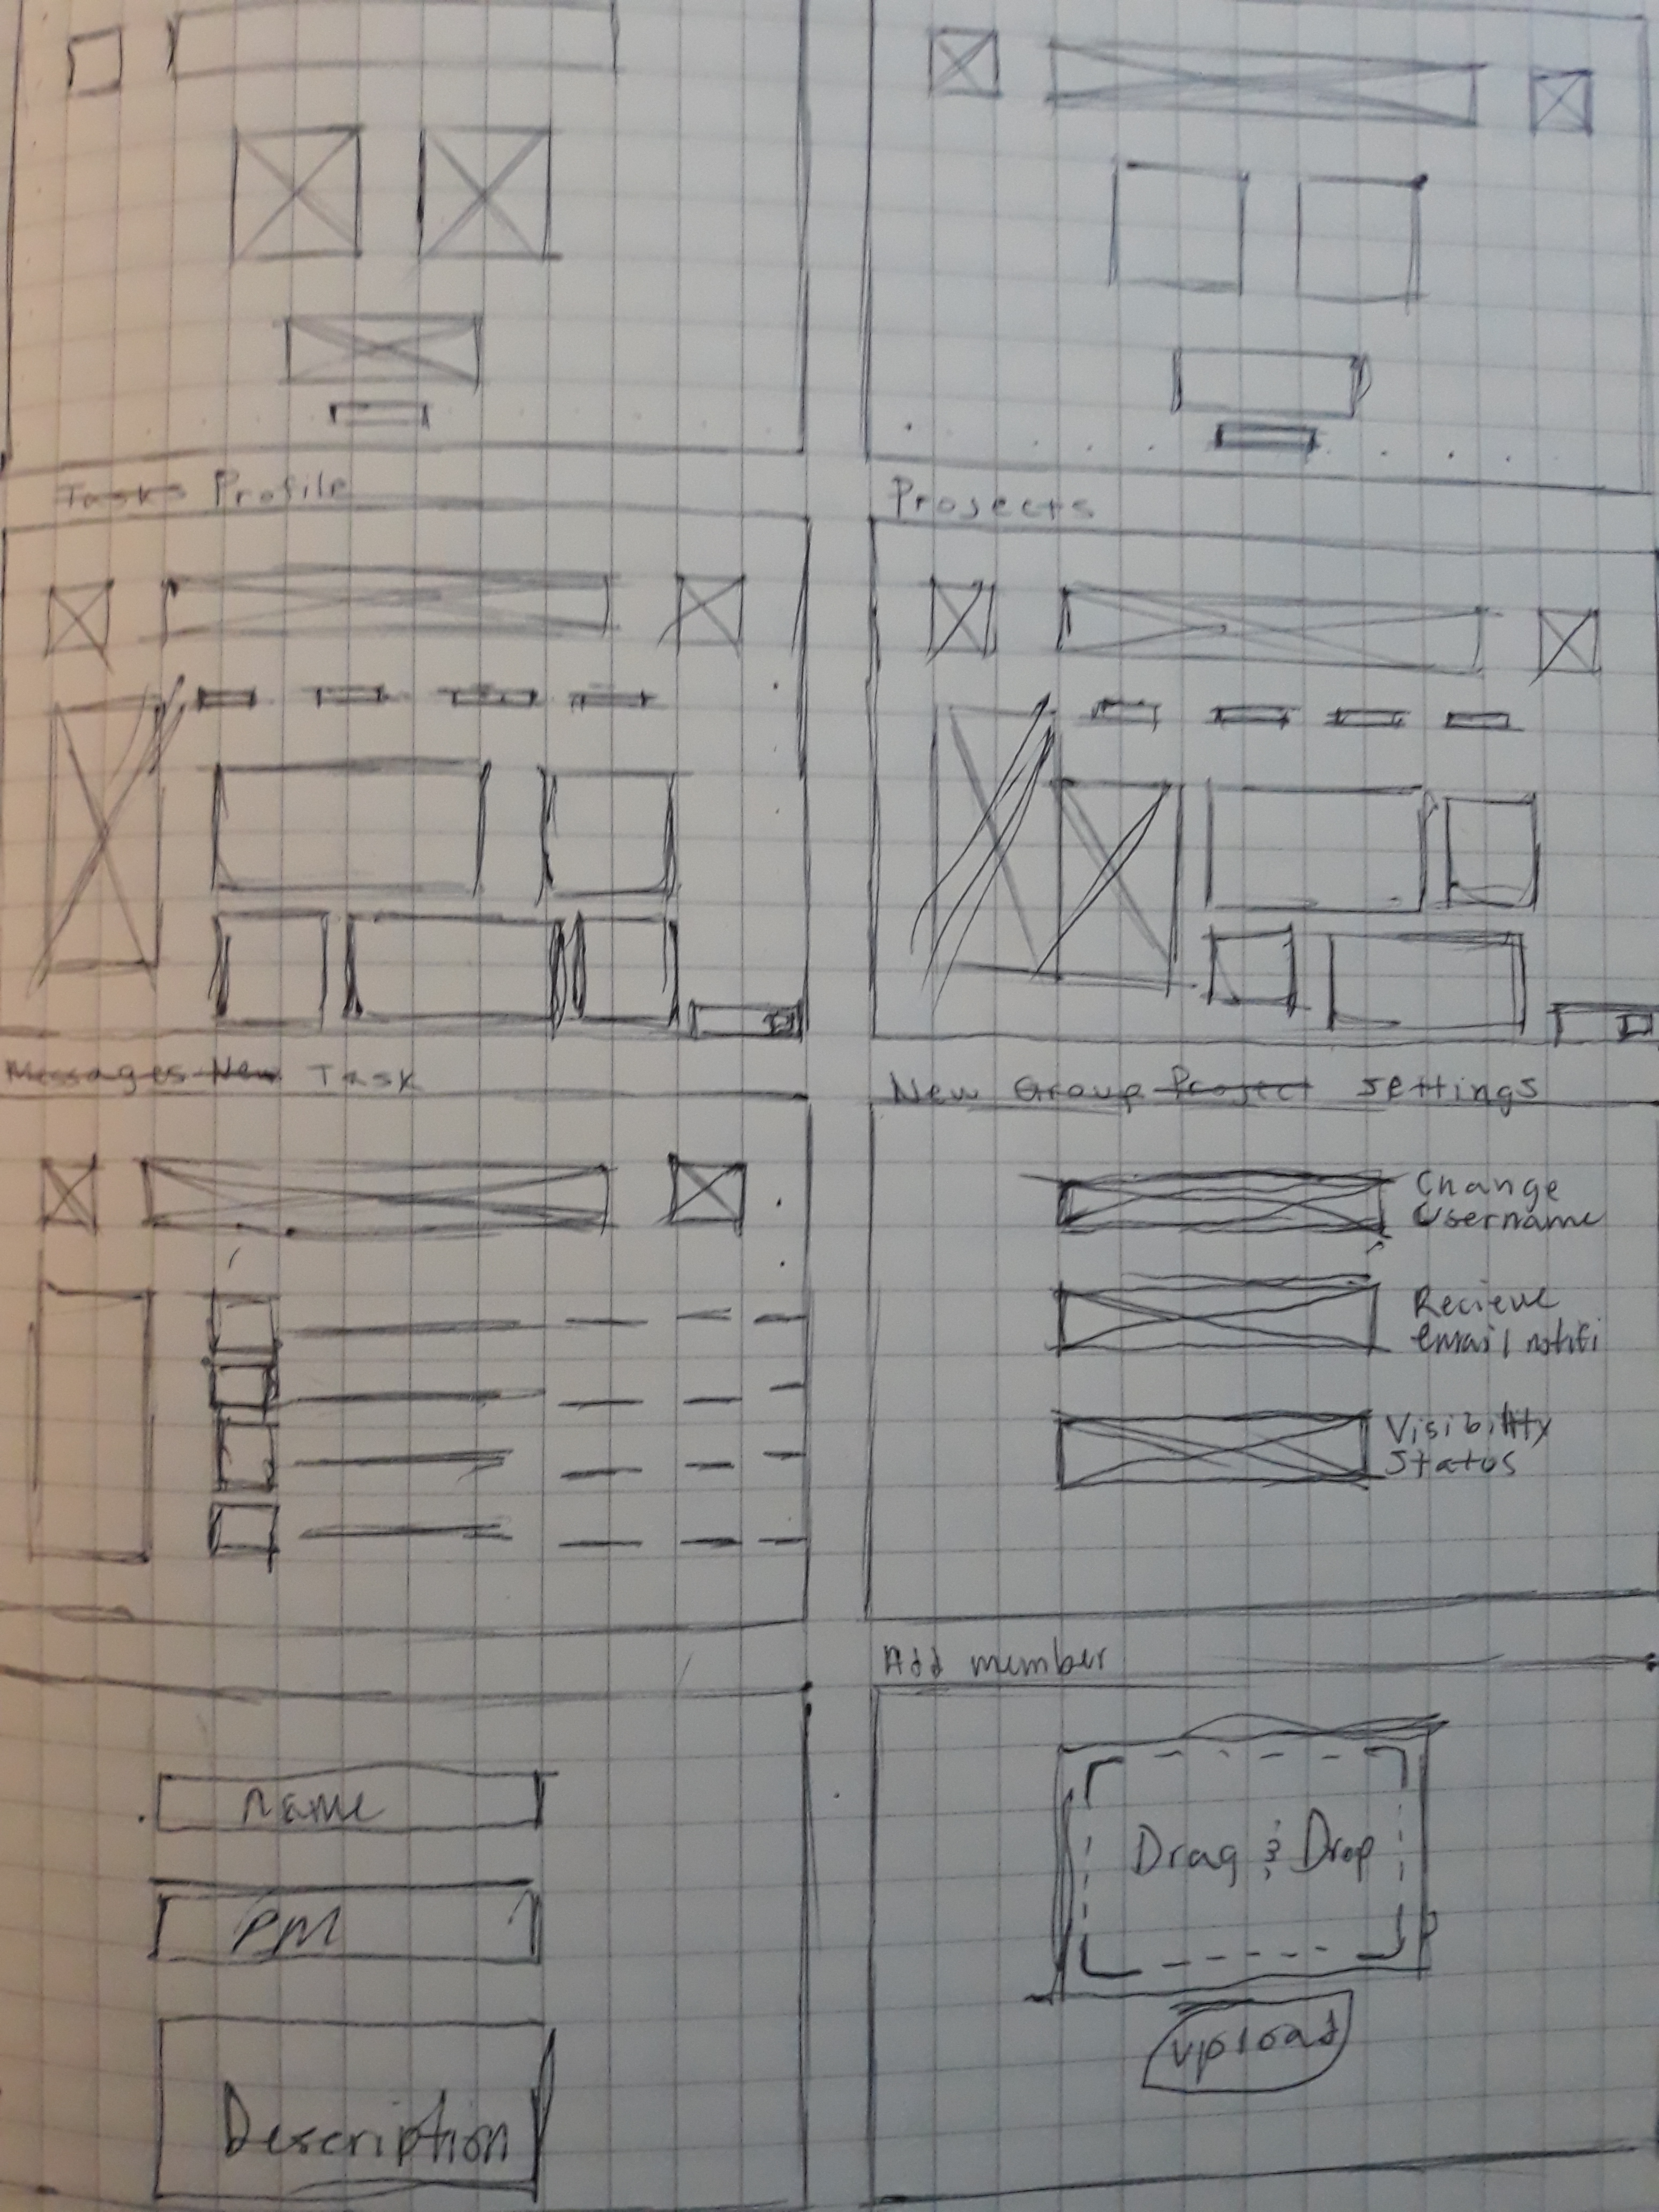 Tasks Profile
Projects
Messages New Task
New Group Project settings
Change
Username
Recieve
email notifi
Visibility
Status
Add member
name
PM
Description
Drag & Drop
upload